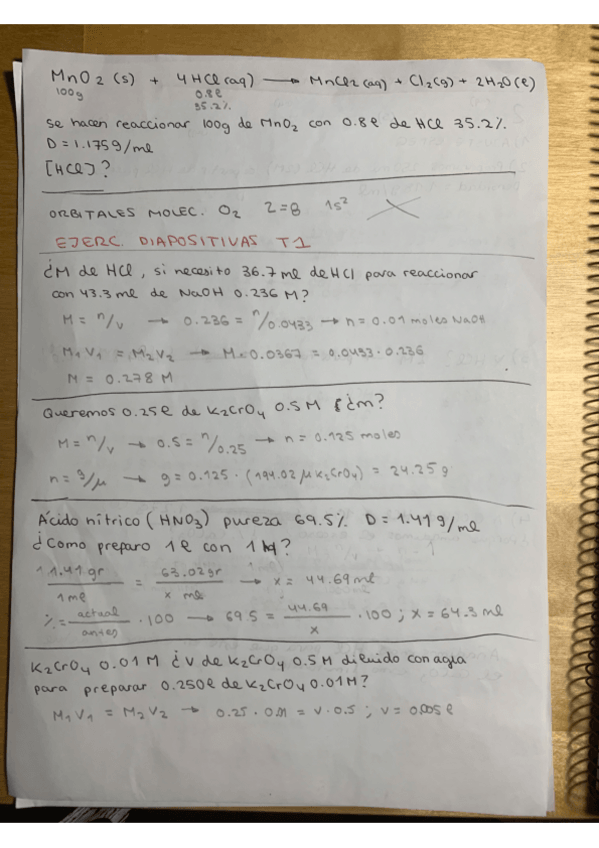 MnO2 (s) + 4HCl (aq) → MnCl2 (aq) + Cl2 (g) + 2H2O (l)
100g 0.8l
35.2%
se hacen reaccionar 100g de MnO2 con 0.8l de HCl 35.2%.
D = 1.175 g/ml
[HCl]?
ORBITALES MOLEC. O2 Z=8 1s²
EJERC. DIAPOSITIVAS T1
¿M de HCl, si necesito 36.7 ml de HCl para reaccionar
con 43.3 ml de NaOH 0.236 M?
M = n/v → 0.236 = n/0.0433 → n = 0.01 moles NaOH
M1 V1 = M2 V2 → M · 0.0367 = 0.0433 · 0.236
M = 0.278 M
Queremos 0.25l de K2CrO4 0.5 M ¿m?
M = n/v → 0.5 = n/0.25 → n = 0.125 moles
n = g/μ → g = 0.125 · (194.02 μ K2CrO4) = 24.25 g
Ácido nítrico (HNO3) pureza 69.5% D = 1.41 g/ml
¿Como preparo 1l con 1M?
1.41 gr / 1 ml = 63.02 gr / x ml → x = 44.69 ml
% = actual / antes · 100 → 69.5 = 44.69 / x · 100 ; x = 64.3 ml
K2CrO4 0.01 M ¿V de K2CrO4 0.5 M diluido con agua
para preparar 0.250l de K2CrO4 0.01M?
M1 V1 = M2 V2 → 0.25 · 0.01 = V · 0.5 ; V = 0.005 l